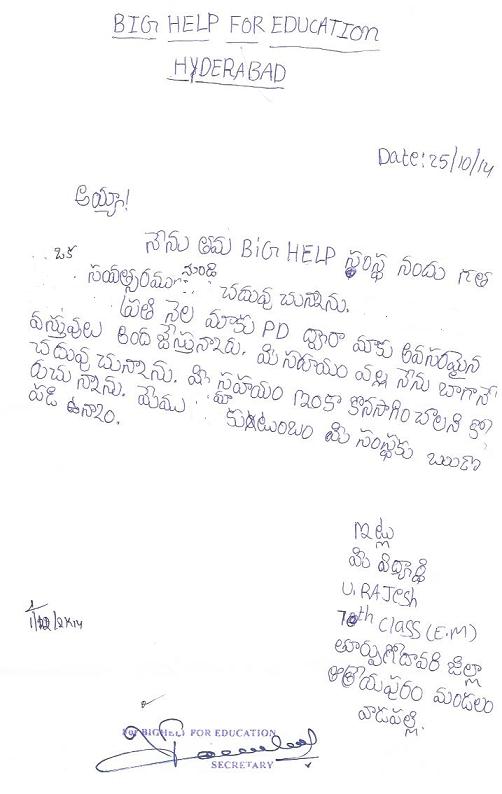 BIG HELP FOR EDUCATION
HYDERABAD
Date: 25/10/14
అయ్యా!
నేను తమ BIG HELP సంస్థ నందు గత
ఒక సంవత్సరము నుండి చదువు చున్నాను.
ప్రతి నెల మాకు PD ద్వారా మాకు అవసరమైన
వస్తువులు అంద జేస్తున్నారు. మీ సహాయం వల్ల నేను బాగానే
చదువు చున్నాను. మీ సహాయం ఇంకా కొనసాగించాలని కో
రుచు న్నాను. మేము మా కుటుంబం మీ సంస్థకు ఋణ
పడి ఉన్నాం.
ఇట్లు
మీ విద్యార్థి
U. RAJESH
10th CLASS (E.M)
తూర్పుగోదావరి జిల్లా
ఆత్రేయపురం మండలం
వాడపల్లి.
For BIGHELP FOR EDUCATION
SECRETARY